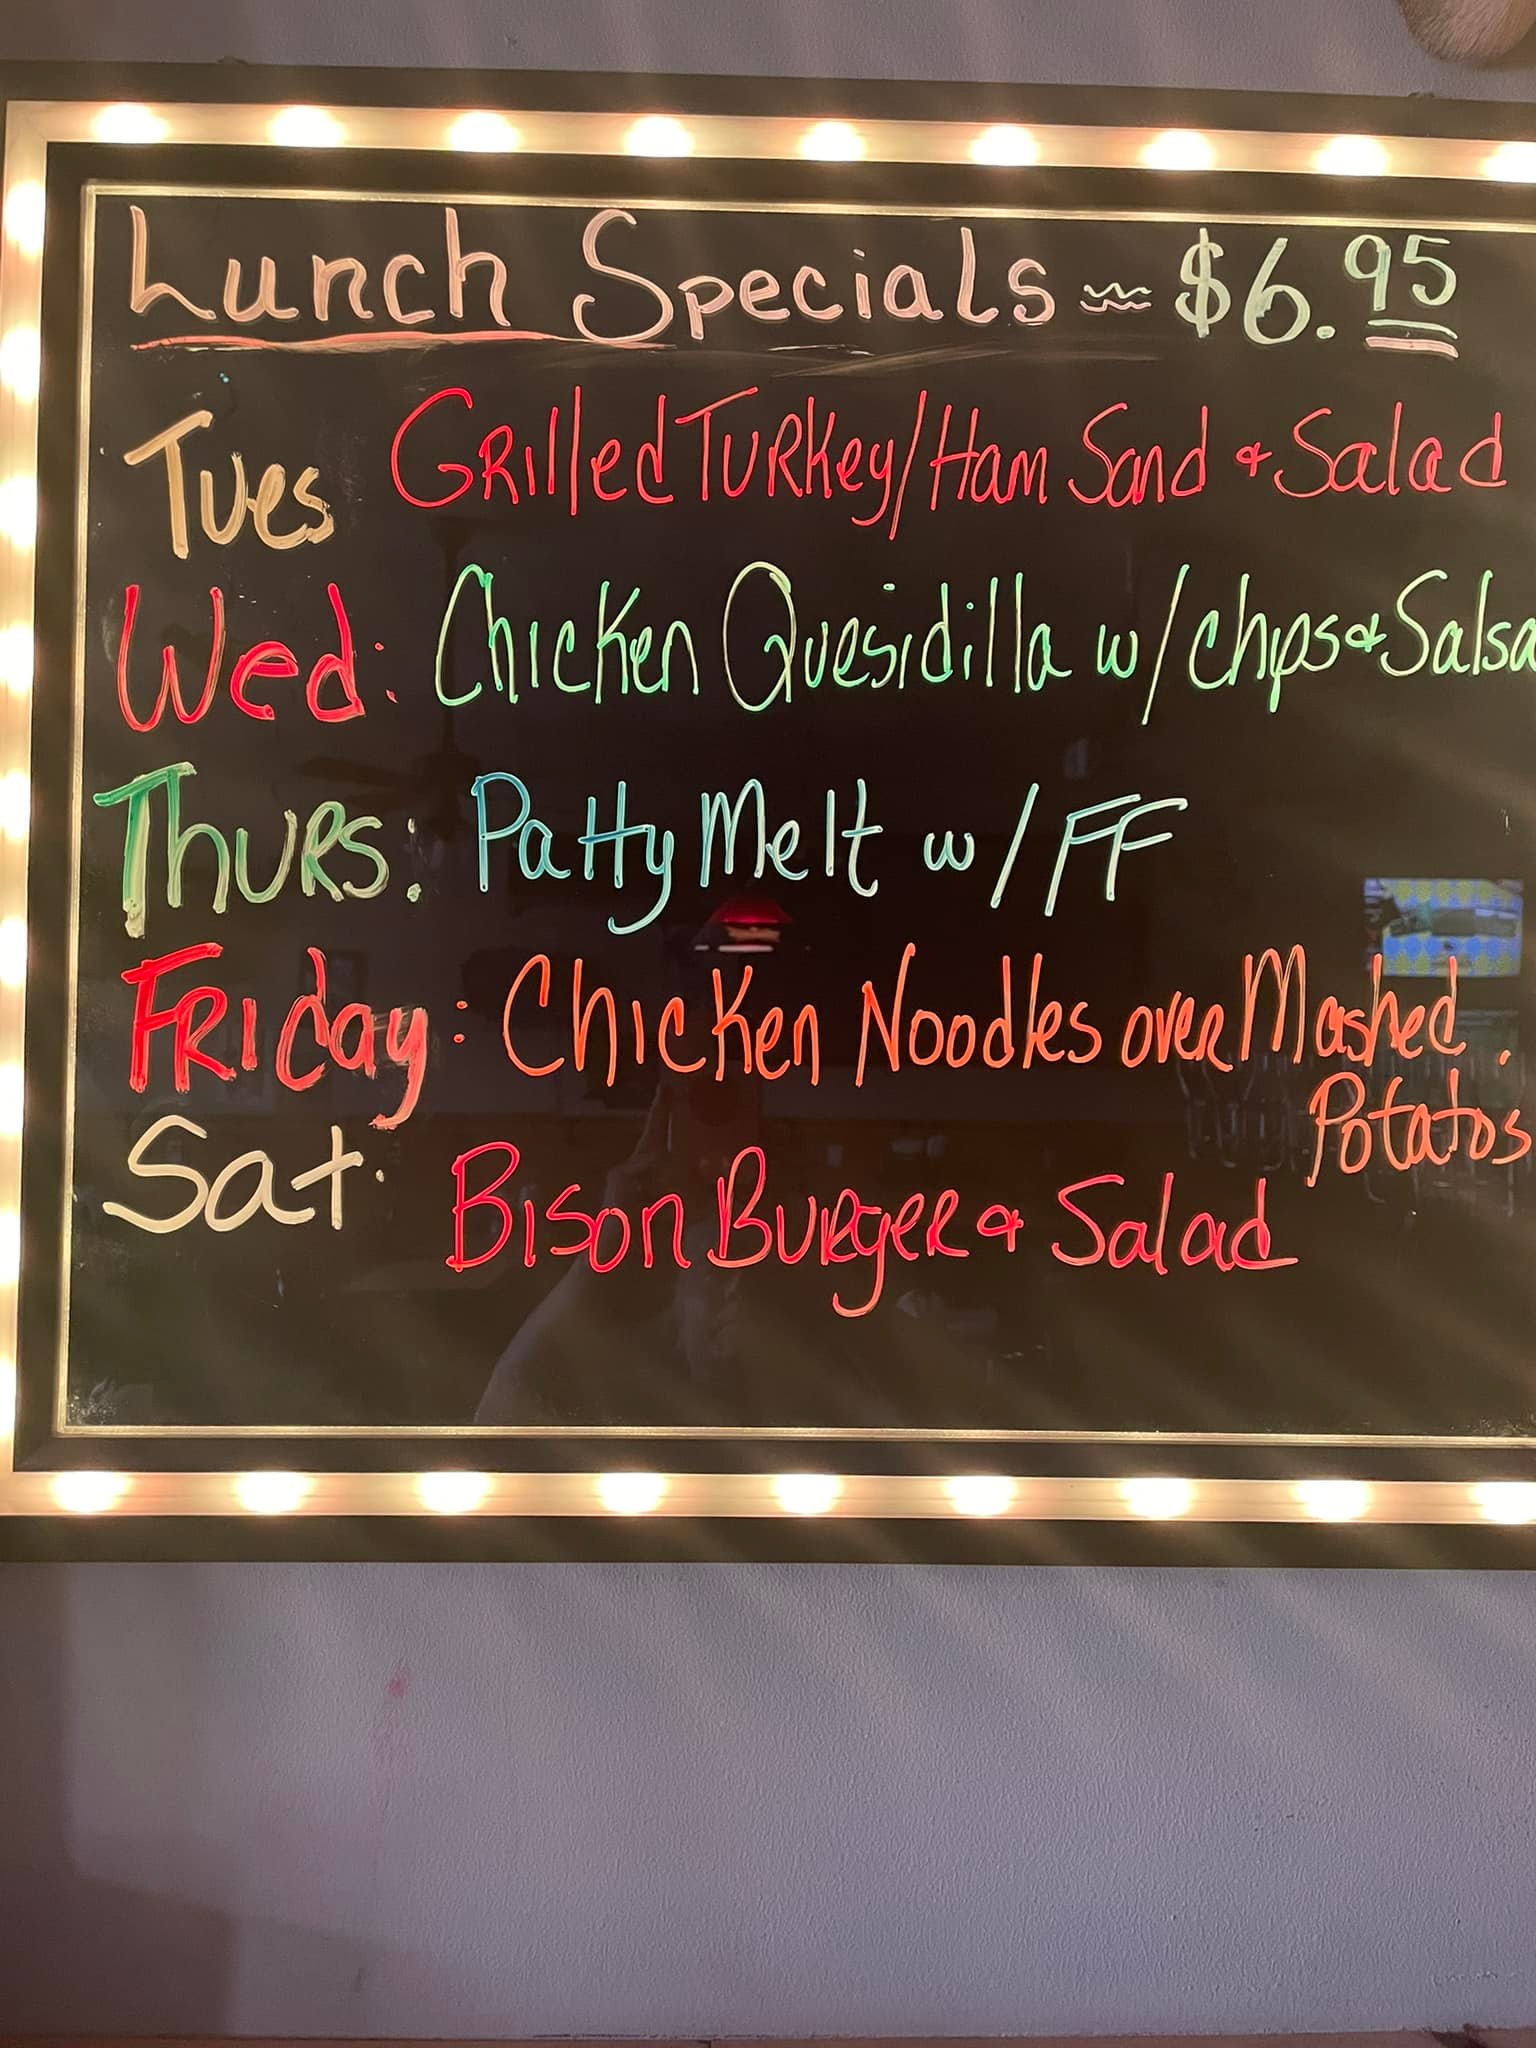 Lunch Specials ~ $6.95
Tues Grilled Turkey/Ham Sand & Salad
Wed: Chicken Quesidilla w/chips & Salsa
Thurs: Patty Melt w/FF
Friday: Chicken Noodles over Mashed.
Potatos
Sat. Bison Burger & Salad